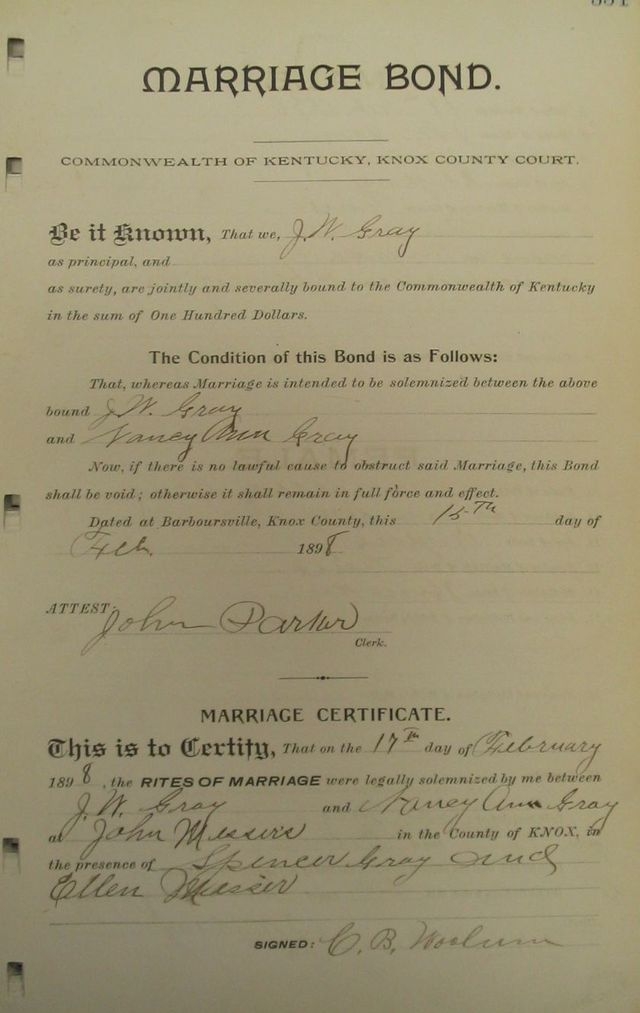 MARRIAGE BOND.
COMMONWEALTH OF KENTUCKY, KNOX COUNTY COURT.
Be it Known, That we, J. W. Gray
as principal, and
as surety, are jointly and severally bound to the Commonwealth of Kentucky
in the sum of One Hundred Dollars.
The Condition of this Bond is as Follows:
That, whereas Marriage is intended to be solemnized between the above
bound J. W. Gray
and Nancy Ann Gray
Now, if there is no lawful cause to obstruct said Marriage, this Bond
shall be void; otherwise it shall remain in full force and effect.
Dated at Barboursville, Knox County, this 15th day of
Feb. 1898
ATTEST: John Parker
Clerk.
MARRIAGE CERTIFICATE.
This is to Certify, That on the 17th day of February
1898, the RITES OF MARRIAGE were legally solemnized by me between
J. W. Gray and Nancy Ann Gray
at John Messers in the County of KNOX, in
the presence of Spencer Gray and
Ellen Messer
SIGNED: C. B. Woolum